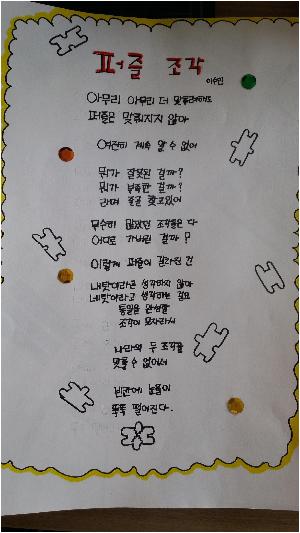 퍼즐 조각
이수민
아무리 아무리 더 맞추려해도
퍼즐은 맞춰지지 않아
여전히 계속 알 수 없어
뭐가 잘못된 걸까?
뭐가 부족한 걸까?
라며 줄곧 찾고있어
무수히 많았던 조각들은 다
어디로 가버린 걸까?
이렇게 퍼즐이 갈라진 건
내탓이라곤 생각하지 않아
네탓이라고 생각하는 걸요
통일을 완성할
조각이 모자라서
나라의 두 조각을
맞출 수 없어서
빈칸에 눈물이
뚝뚝 떨어진다.